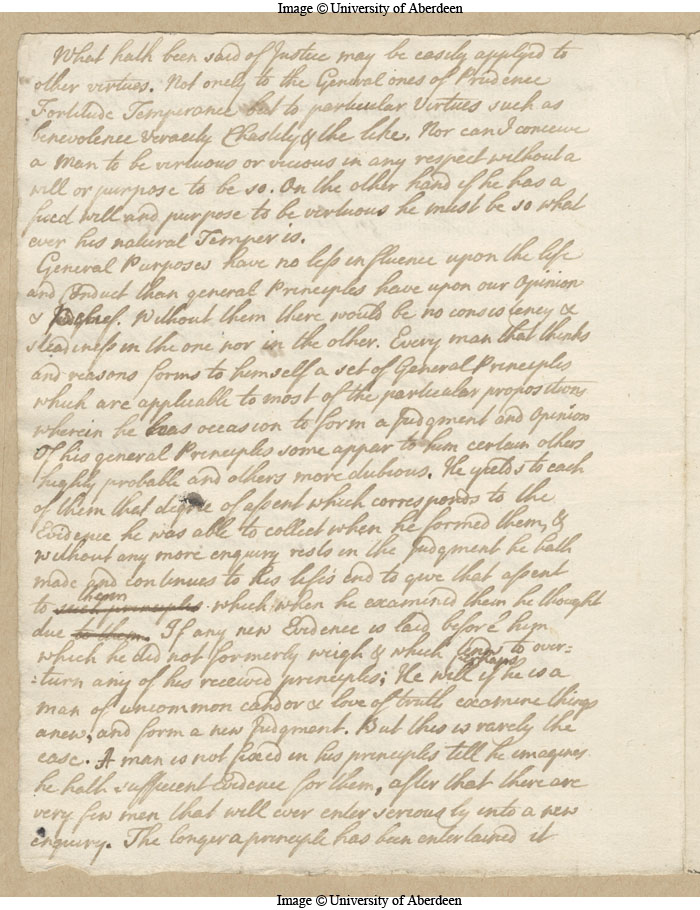 Image © University of Aberdeen
What hath been said of Justice may be easily applyed to
other virtues. Not onely to the General ones of Prudence
Fortitude Temperance but to particular Virtues such as
benevolence Veracity Chastity & the like. Nor can I conceive
a Man to be virtuous or vicious in any respect without a
will or purpose to be so. On the other hand if he has a
fixed will and purpose to be virtuous he must be so what
ever his natural Temper is.
General Purposes have no less influence upon the life
and Conduct than general Principles have upon our Opinion
& Belief. Without them there would be no consistency &
steadiness in the one nor in the other. Every man that thinks
and reasons forms to himself a set of General Principles
which are applicable to most of the particular propositions
wherein he has occasion to form a Judgment and Opinion
Of his general Principles some appar to him certain others
highly probable and others more dubious. He yields to each
of them that degree of assent which corresponds to the
Evidence he was able to collect when he formed them, &
without any more enquiry rests in the Judgment he hath
made and continues to his life's end to give that assent
them
to such principles which when he examined them he thought
due to them. If any new Evidence is laid before him
which he did not formerly weigh & which tends to over=
perhaps
=turn any of his received principles; He will if he is a
man of uncommon candor & love of truth examine things
anew, and form a new Judgment. But this is rarely the
case. A man is not fixed in his principles till he imagines
he hath sufficient Evidence for them, after that there are
very few men that will ever enter seriously into a new
enquiry. The longer a principle has been entertained it
Image © University of Aberdeen